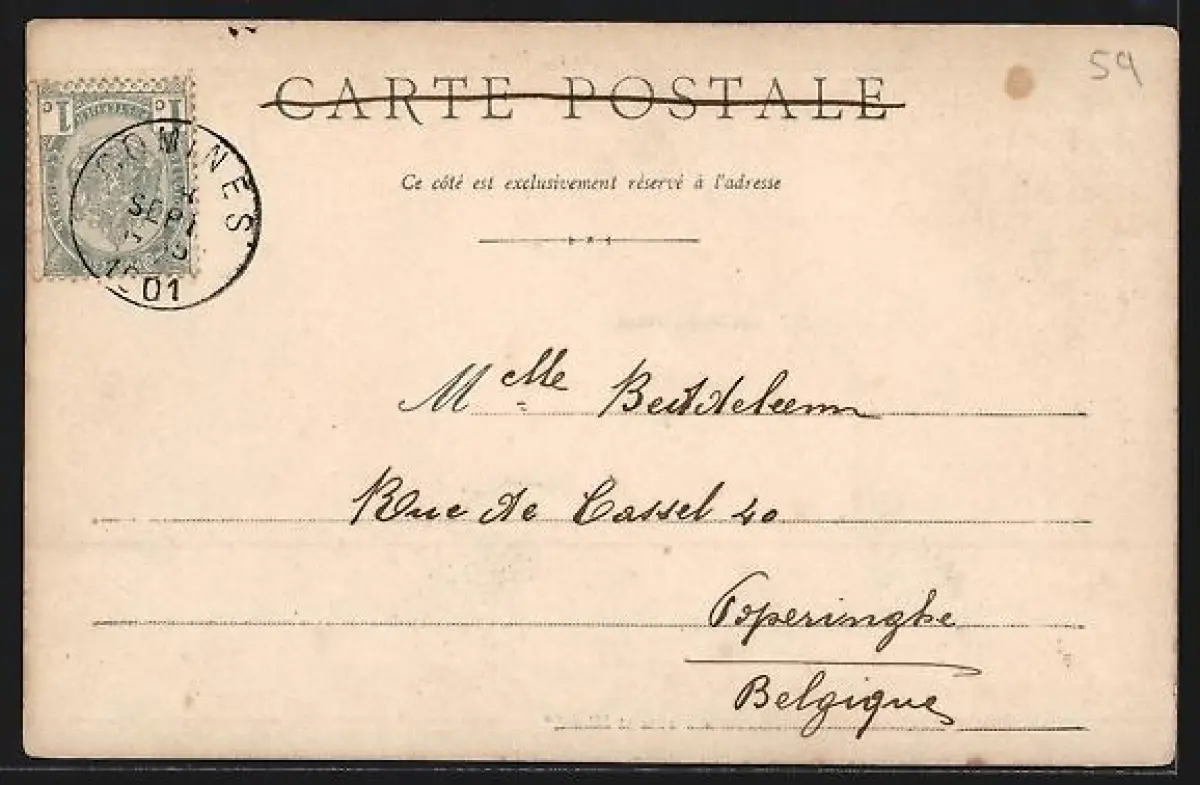 59
CARTE POSTALE
Ce côté est exclusivement réservé à l'adresse
1c 1c
COMINES
SEPT
01
Mcelle
Rue de Cassel 40
Poperinghe
Belgique